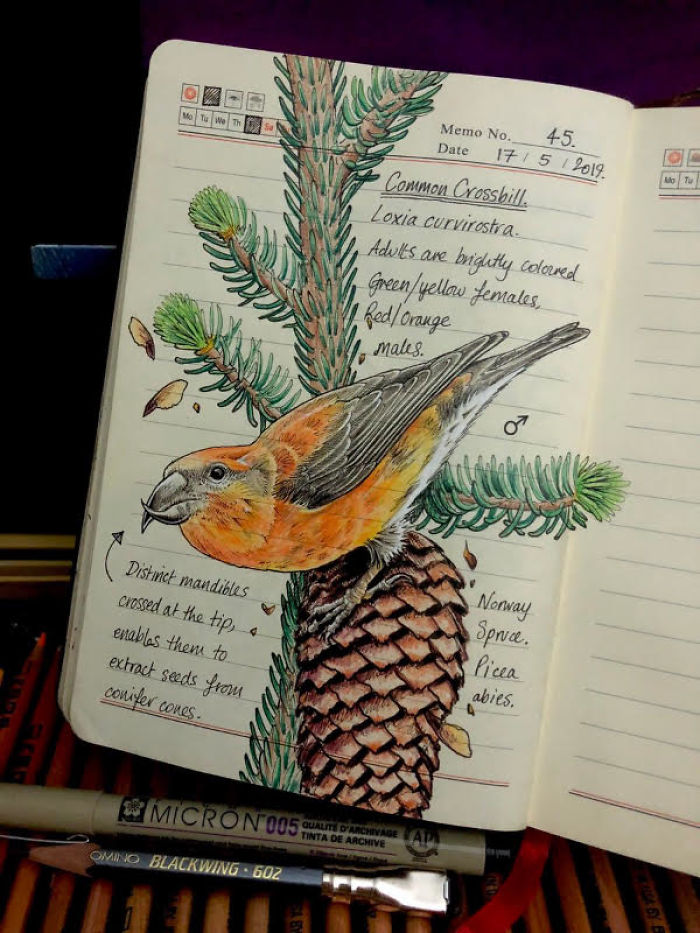 Memo No. 45.
Mo Tu We Th Sa
Date 17 / 5 / 2019.
Mo Tu
Common Crossbill.
Loxia curvirostra.
Adults are brightly coloured
Green/yellow females,
Red/orange
males.
♂
Distinct mandibles
crossed at the tip,
enables them to
extract seeds from
conifer cones.
Norway
Spruce.
Picea
abies.
MICRON 005
QUALITÉ D'ARCHIVAGE
TINTA DE ARCHIVE
AP
OMINO BLACKWING · 602